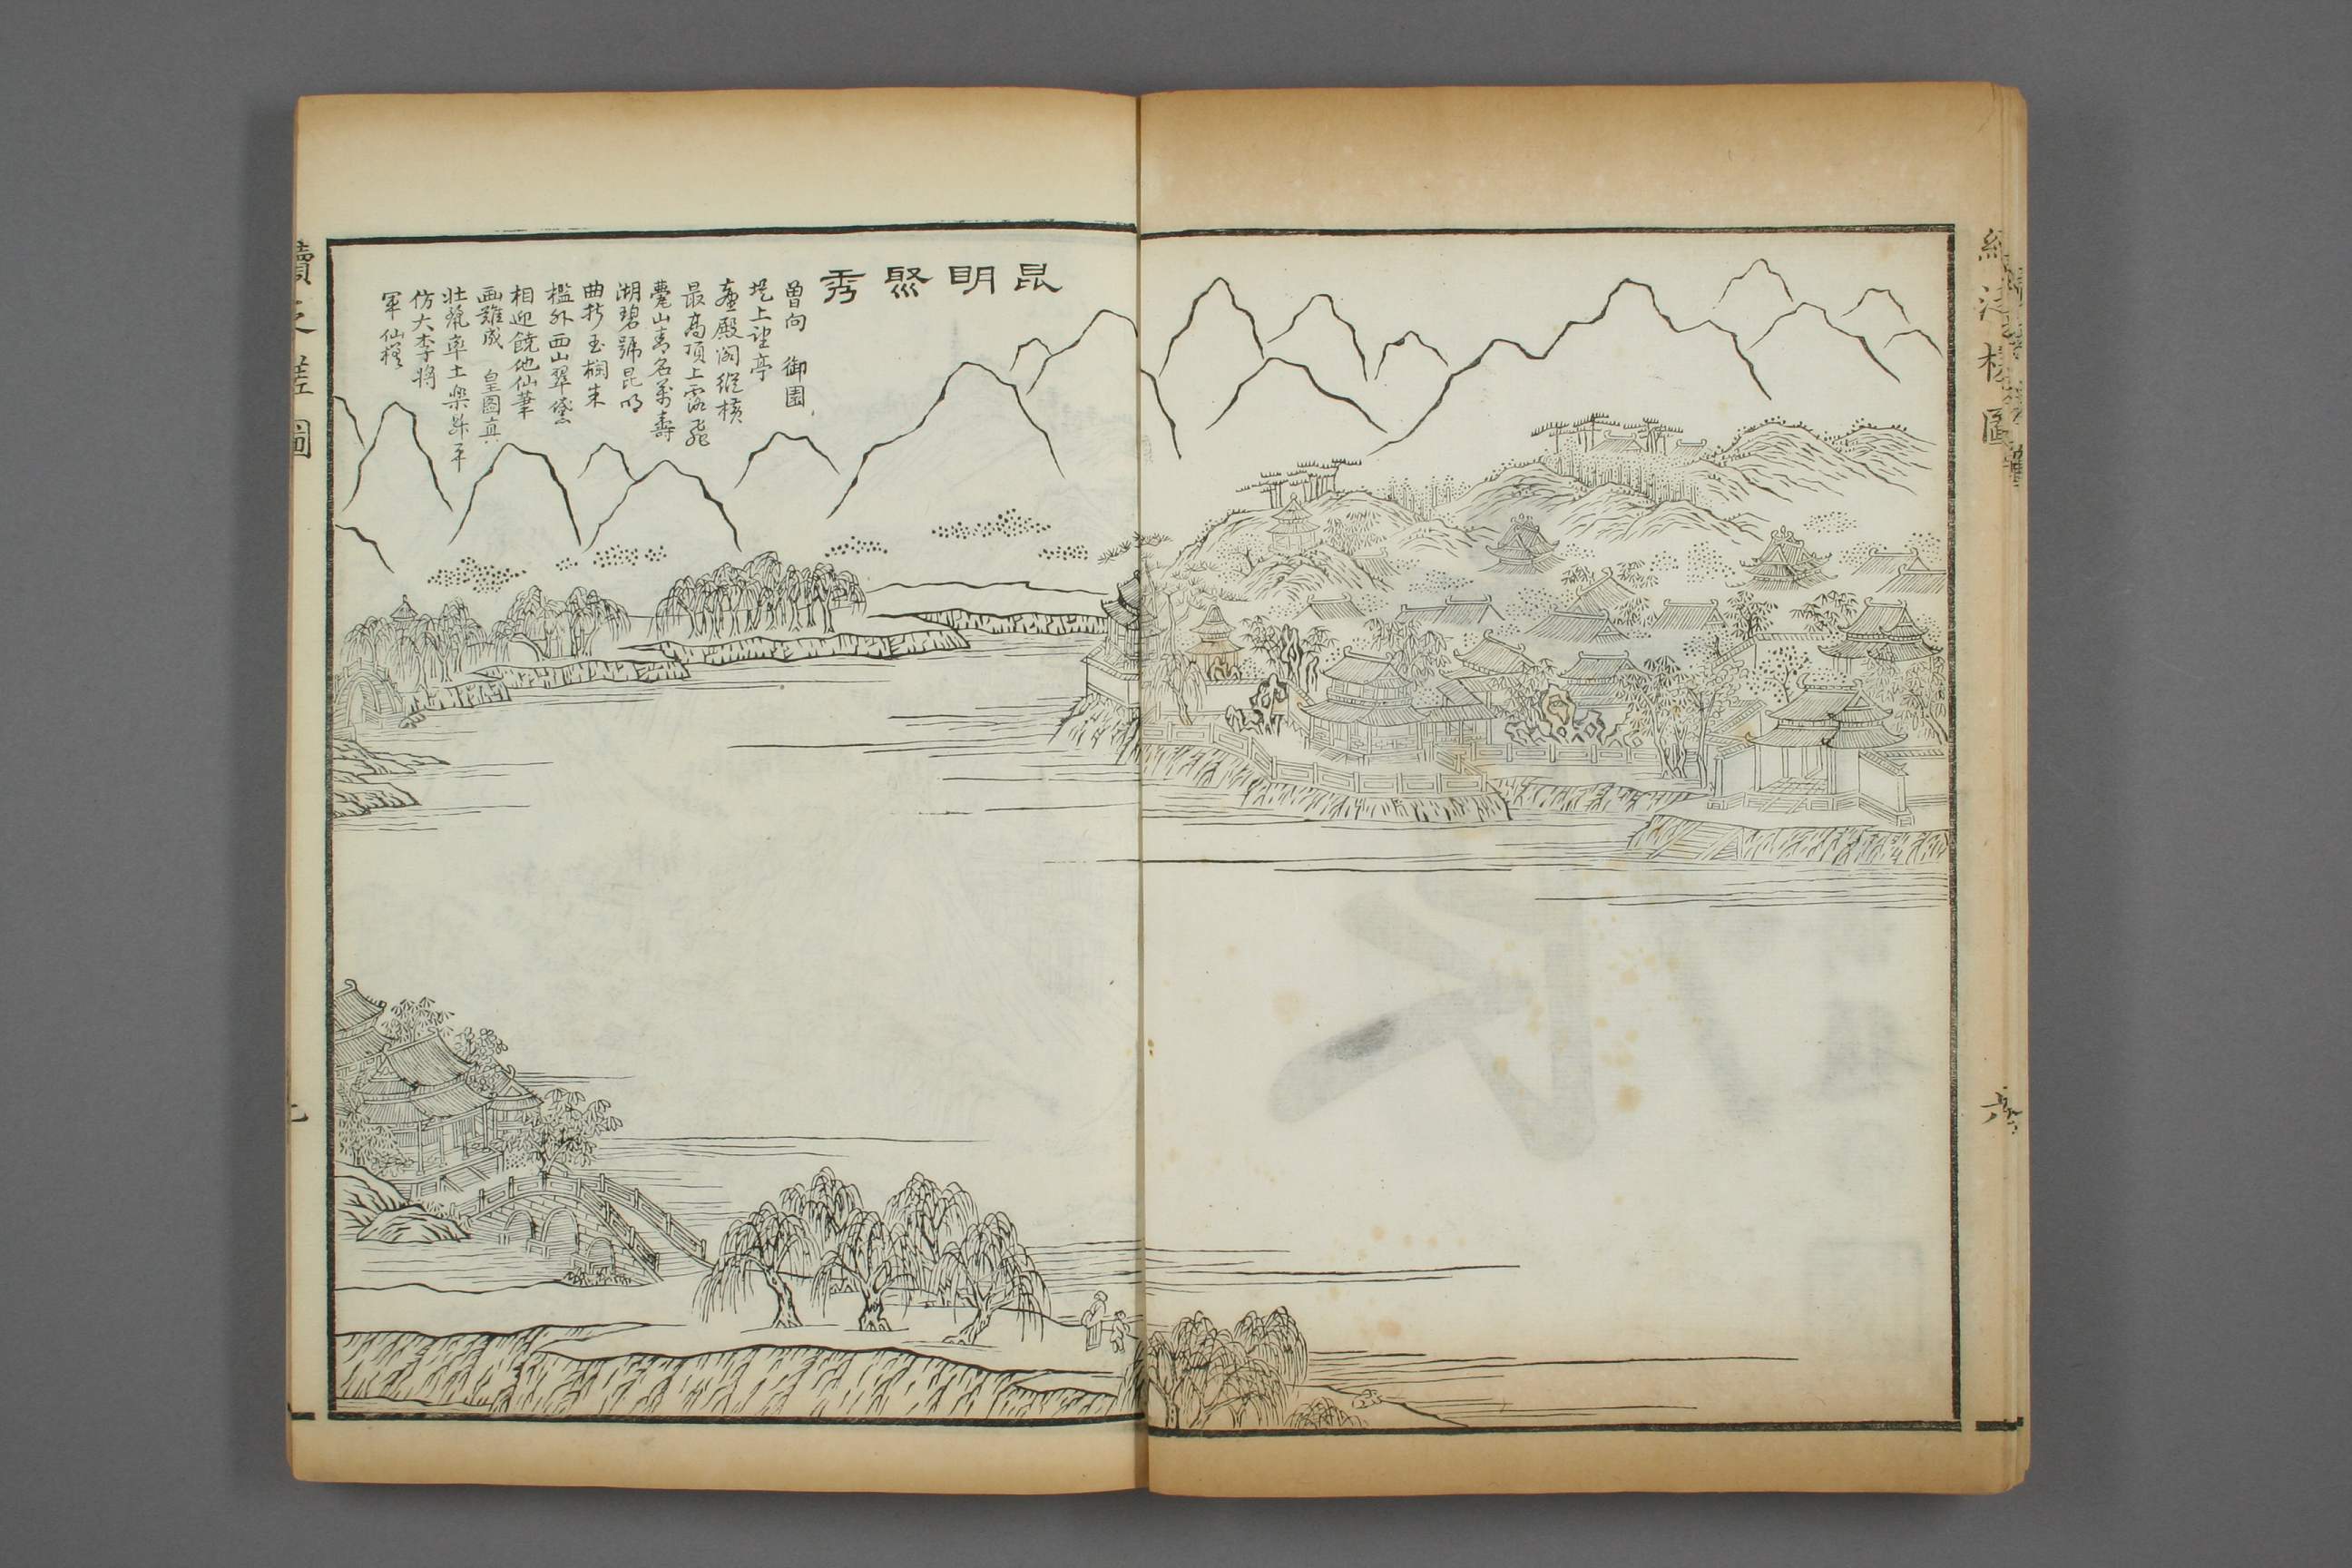 續泛槎圖
六
昆明秀
曾向 御園
堤上望亭
臺殿閣縱橫
最高頂上露飛
甍山青名萬壽
湖碧號昆明
曲折玉欄來
檻外西山翠黛
相迎饒他仙筆
画難成 皇圖真
壯麗率土樂昇平
仿大李將
軍仙樓
續泛槎圖